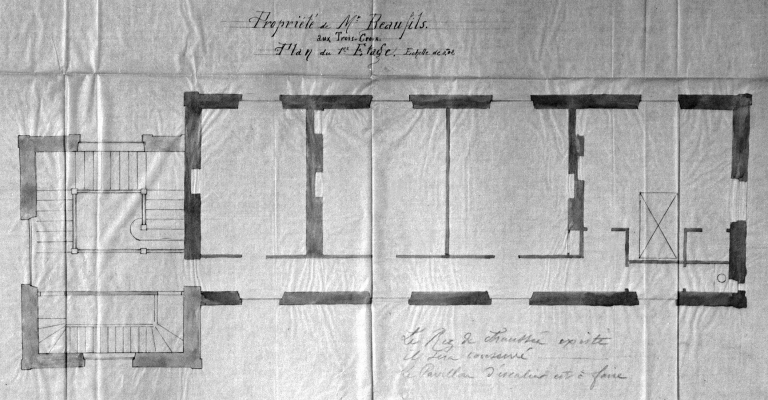 Propriété de Mr Beaufils.
aux Trois-Croix
Plan du 1er Etage. Echelle de
Le Rez de chaussée existe
et sera conservé
le Pavillon d'escalier est à faire